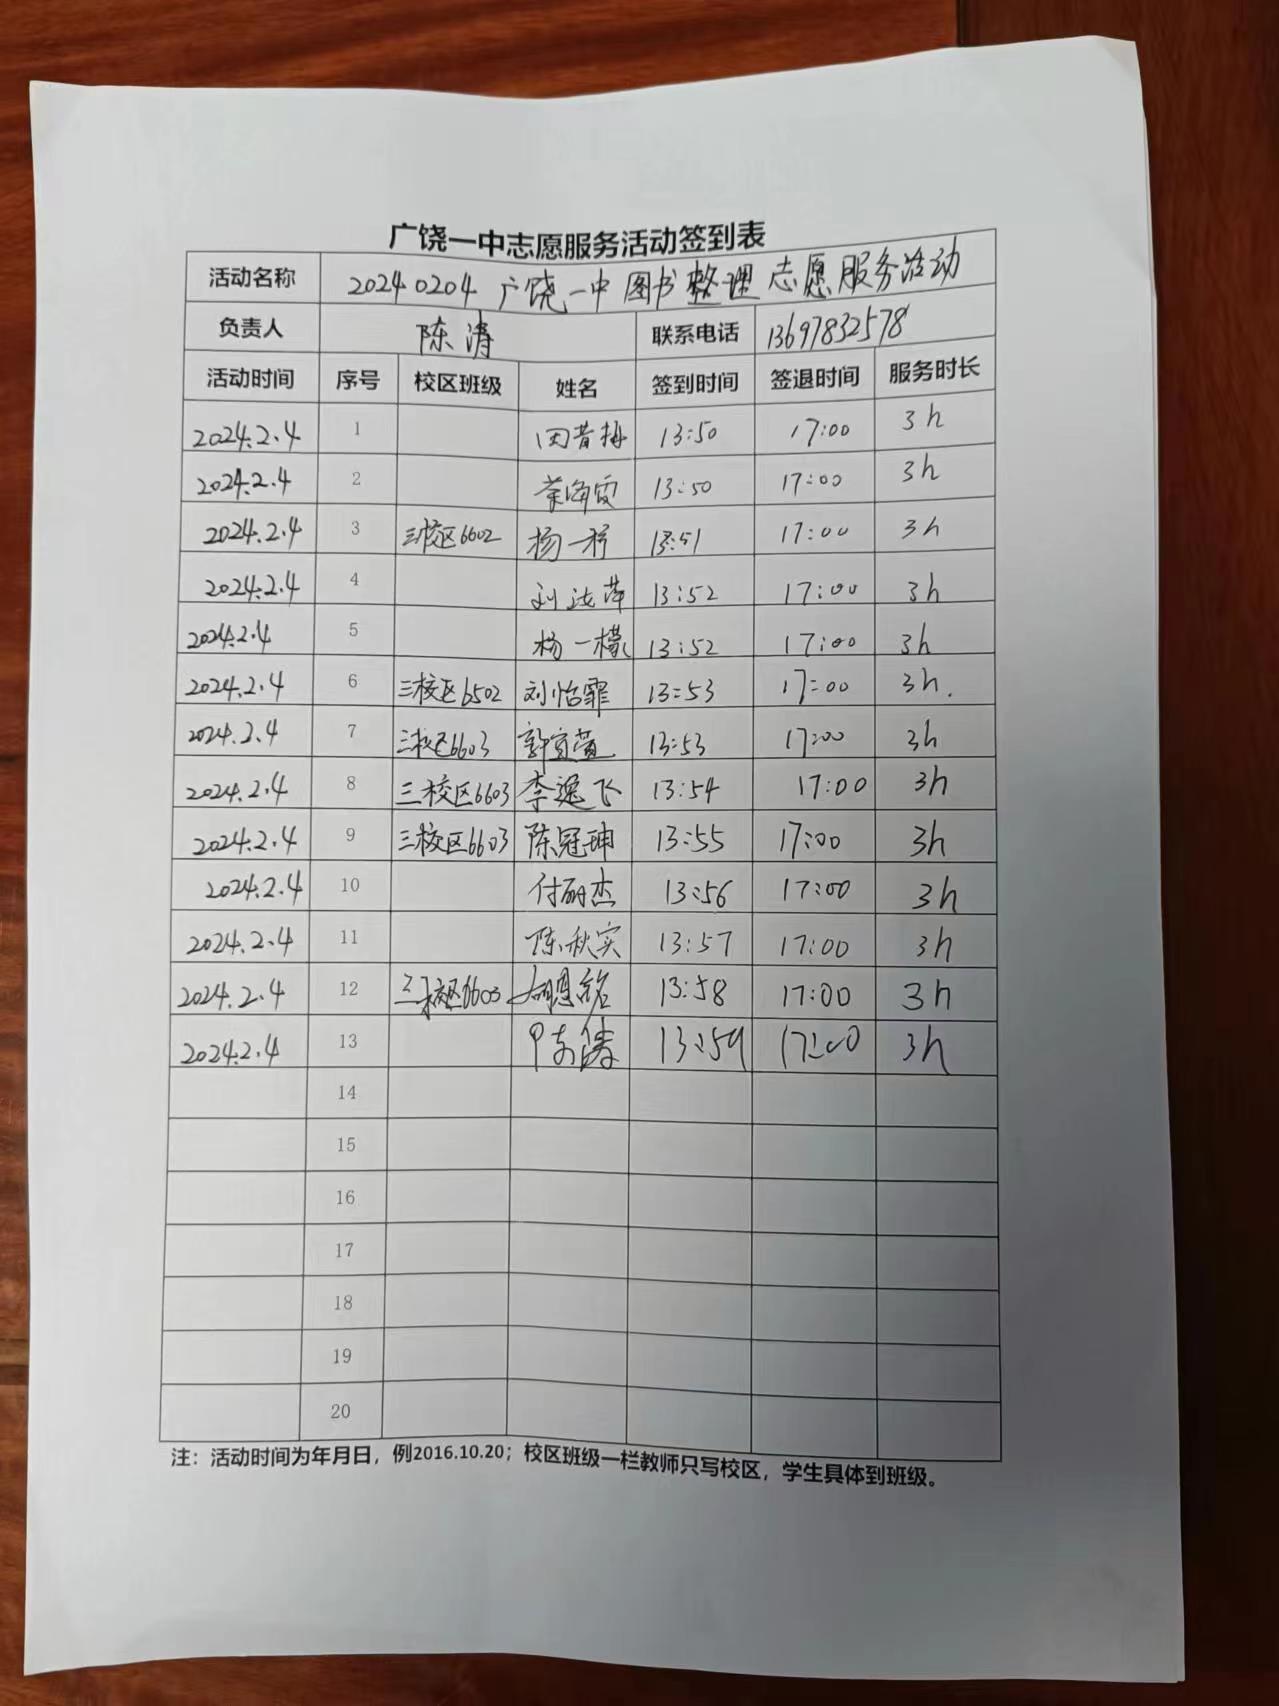 广饶一中志愿服务活动签到表
活动名称 20240204 广饶一中图书整理志愿服务活动
负责人 陈涛 联系电话 13697832578
活动时间 序号 校区班级 姓名 签到时间 签退时间 服务时长
2024.2.4 1 13:50 17:00 3h
2024.2.4 2 13:50 17:00 3h
2024.2.4 3 三校区6602 杨一 13:51 17:00 3h
2024.2.4 4 刘 萍 13:52 17:00 3h
2024.2.4 5 杨一檬 13:52 17:00 3h
2024.2.4 6 三校区6502 刘怡霏 13:53 17:00 3h.
2024.2.4 7 三校区6603 郭宜萱 13:53 17:00 3h
2024.2.4 8 三校区6603 李逸飞 13:54 17:00 3h
2024.2.4 9 三校区6603 陈冠珅 13:55 17:00 3h
2024.2.4 10 付丽杰 13:56 17:00 3h
2024.2.4 11 陈秋实 13:57 17:00 3h
2024.2.4 12 三校区6603 13:58 17:00 3h
2024.2.4 13 陈涛 13:59 17:00 3h
14
15
16
17
18
19
20
注：活动时间为年月日，例2016.10.20；校区班级一栏教师只写校区，学生具体到班级。